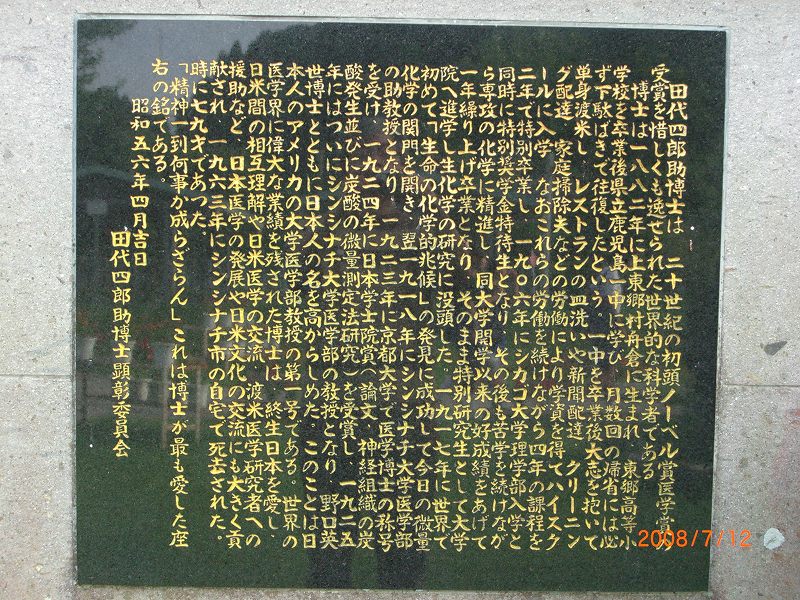 田代四郎助博士は 二十世紀の初頭ノーベル賞医学賞の
受賞を惜しくも逸せられた世界的な科学者である
博士は一八八二年に上東郷村舟倉に生まれ 東郷高等小
学校を卒業後県立鹿児島一中に学び 月数回の帰省には必
ず下駄ばきで往復したという 一中を卒業後大志を抱いて
単身渡米し レストランの皿洗いや新聞配達 クリーニン
グ配達 家庭掃除夫などの労働により学資を得てハイスク
ールに入学 なおこれらの労働を続けながら四年の課程を
二年で特別卒業し 一九〇六年にシカゴ大学理学部入学と
同時に特別奨学金特待生となり その後も苦学を続けなが
ら専攻の化学に精進し 同大学開学以来の好成績をあげて
一年繰り上げ卒業となり そのまま特別研究生として大学
院へ進学し生化学の研究に没頭した 一九一七年に世界で
初めて「生命の化学的兆候」の発見に成功して今日の微量
化学の関門を開き 翌一九一八年にシンシナチ大学医学部
の助教授となり 一九二三年に京都大学で医学博士の称号
を受け、一九二四年に日本学士院賞(論文、神経組織の炭
酸発生並びに炭酸の微量測定法研究)を受賞し 一九二五
年にはついにシンシナチ大学医学部の教授となり 野口英
世博士とともに日本人の名を高からしめた このことは日
本人のアメリカの大学医学部教授の第一号である。世界の
医学界に偉大な業績を残された博士は 終生日本を愛し
日米間の相互理解や日米医学の交流、渡米医学研究者への
援助など 日本医学の発展や日米文化の交流にも大きく貢
献され 一九六三年にシンシナチ市の自宅で死去された。
時に七九才であった
「精神一到何事か成らざらん」これは博士が最も愛した座
右の銘である。
昭和五六年四月吉日
田代四郎助博士顕彰委員会
2008/7/12